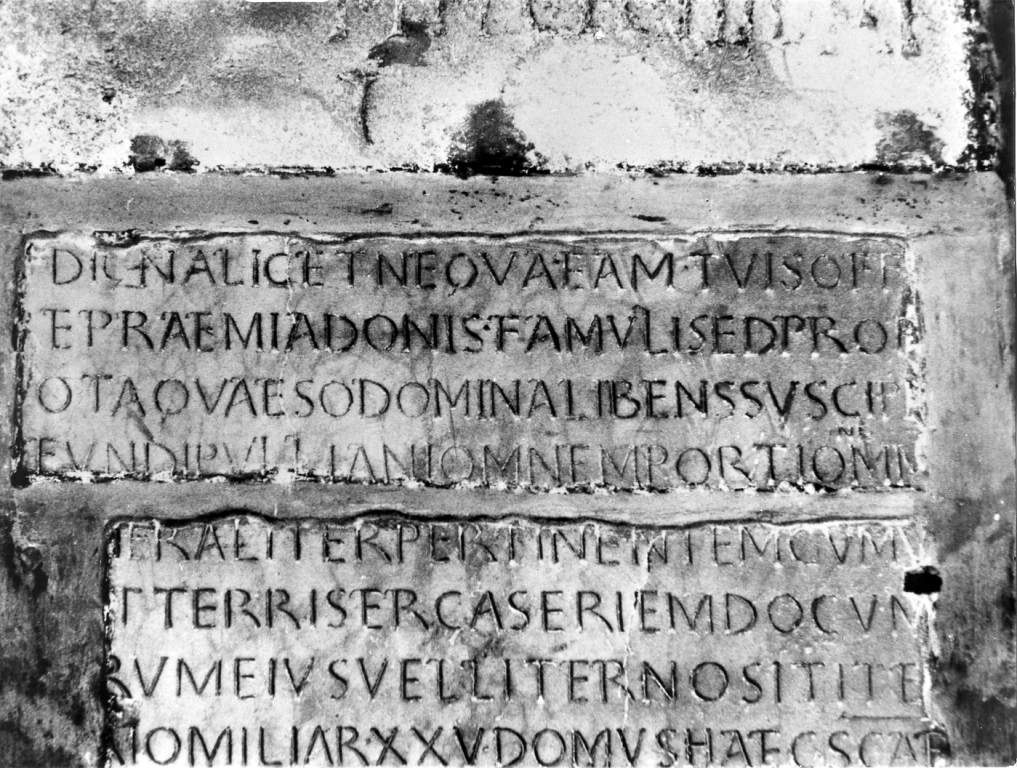 DIGNALICETNEQVAEAM·TVISOFF
EPRAEMIADONIS·FAMVLISEDPROP
OTAQVAESODOMINALIBENSSVSCIP
FVNDIPVLLIANIOMNEMPORTIOMNEM
ERALITERPERTINENTEMCVM
TTERRISERCASERIEMDOCVM
RVMEIVSVELLITERNOSITITE
MILIARXXVDOMVSHAECSCAE